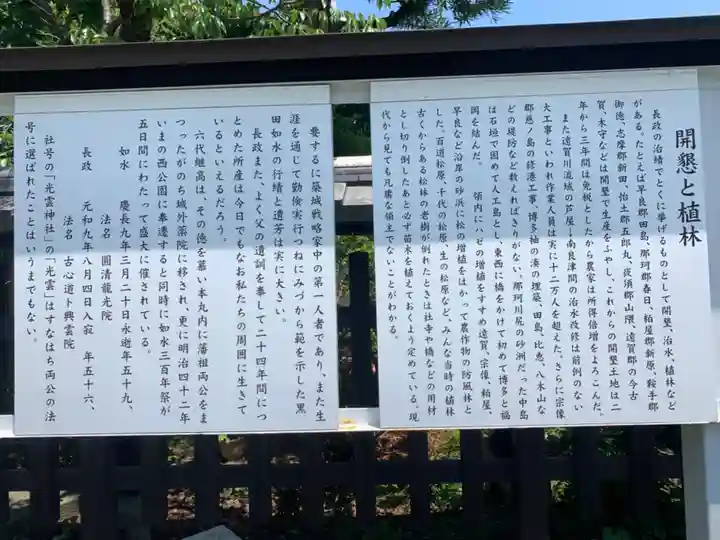 開懇と植林
長政の治績でとくに挙げるものとして開墾、治水、植林など
がある。たとえば早良郡田島、那珂郡春日、粕屋郡新原、鞍手郡
御徳、志摩郡新田、怡土郡五郎丸、夜須郡山隈、遠賀郡の今古
賀、木守などは開墾で生産をふやし、これからの開墾土地は二
年から三年間は免税としたから農家は所得倍増をよろこんだ。
また遠賀川流域の芦屋、南良津間の治水改修は前例のない
大工事といわれ作業人員は実に十二万人を超えた。さらに宗像
郡慈ノ島の修港工事、博多袖の湊の埋築、田島、比恵、八木山な
どの堤防など数えればきりがない。那珂川尻の砂洲だった中島
は石垣で固めた人工島とし、東西に橋をかけて初めて博多と福
岡を結んだ。 領内にハゼの増植をすすめ遠賀、宗像、粕屋、
早良など沿岸の砂浜に松の増植をはかって農作物の防風林と
した。百道松原、千代の松原、生の松原など、みんな当時の植林
古くからある松林の老樹が倒れたときは社寺や橋などの用材
とし切り倒したあと必ず苗木を植えておくよう定めている。現
代から見ても凡庸な領主でないことがわかる。
要するに築城戦略家中の第一人者であり、また生
涯を通じて勤倹実行つねにみづから範を示した黒
田如水の行績と遺芳は実に大きい。
長政また、よく父の遺訓を奉して二十四年間につ
とめた所産は今日でもなお私たちの周囲に生きて
いるといえるだろう。
六代継高は、その徳を慕い本丸内に藩祖両公をま
つったがのち城外薬院に移され、更に明治四十二年
いまの西公園に奉遷すると同時に如水三百年祭が
五日間にわたって盛大に催されている。
如水 慶長九年三月二十日永逝年五十九、
法名 圓清龍光院
長政 元和九年八月四日入寂 年五十六、
法名 古心道卜興雲院
社号の「光雲神社」の「光雲」はすなはち両公の法
号に選ばれたことはいうまでもない。